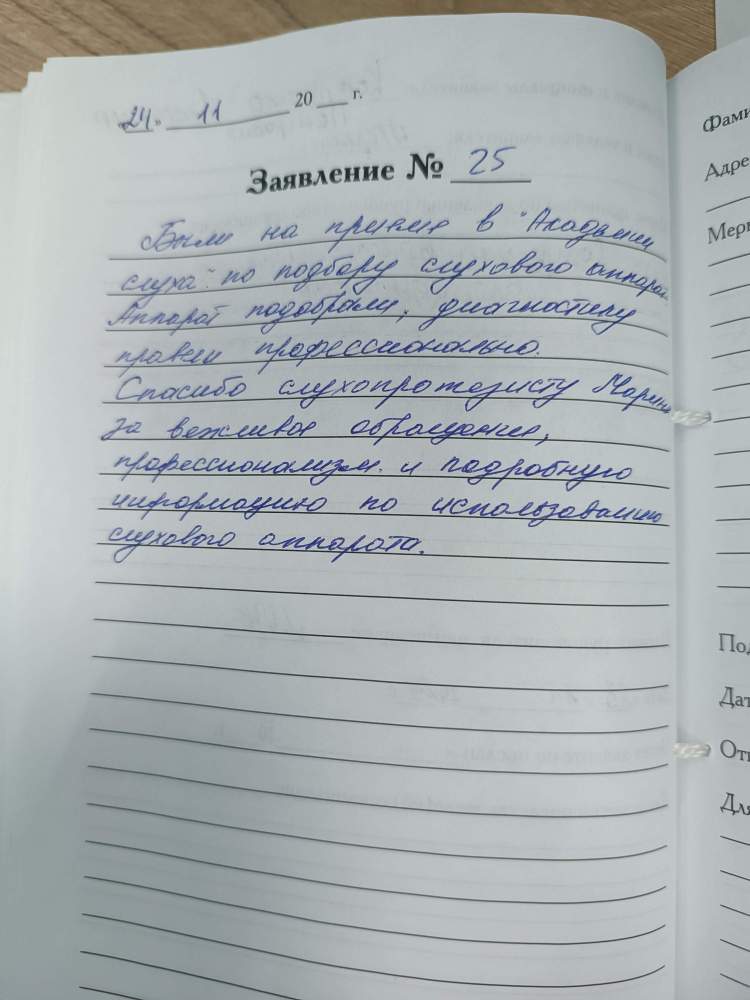 „24" 11 20__ г.
Заявление № 25
Были на приеме в "Академии
слуха" по подбору слухового аппарата.
Аппарат подобрали, диагностику
провели профессионально.
Спасибо слухопротезисту Марине
за вежливое обращение,
профессионализм и подробную
информацию по использованию
слухового аппарата.
Фами
Адре
Мери
Под
Дат
Отм
Для